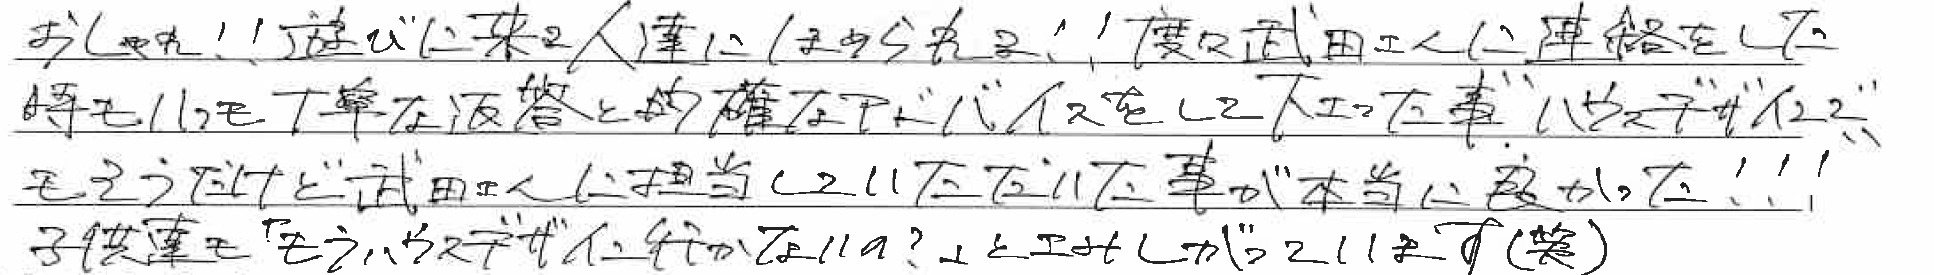 おしゃれ!!遊びに来る人達にほめられる!!度々武田さんに連絡をした
時もいつも丁寧な返答と的確なアドバイスをして下さった事。ハウスデザインで
もそうだけど武田さんに担当していただいた事が本当に良かった!!!
子供達も「もうハウスデザイン行かないの?」とさみしがっています(笑)